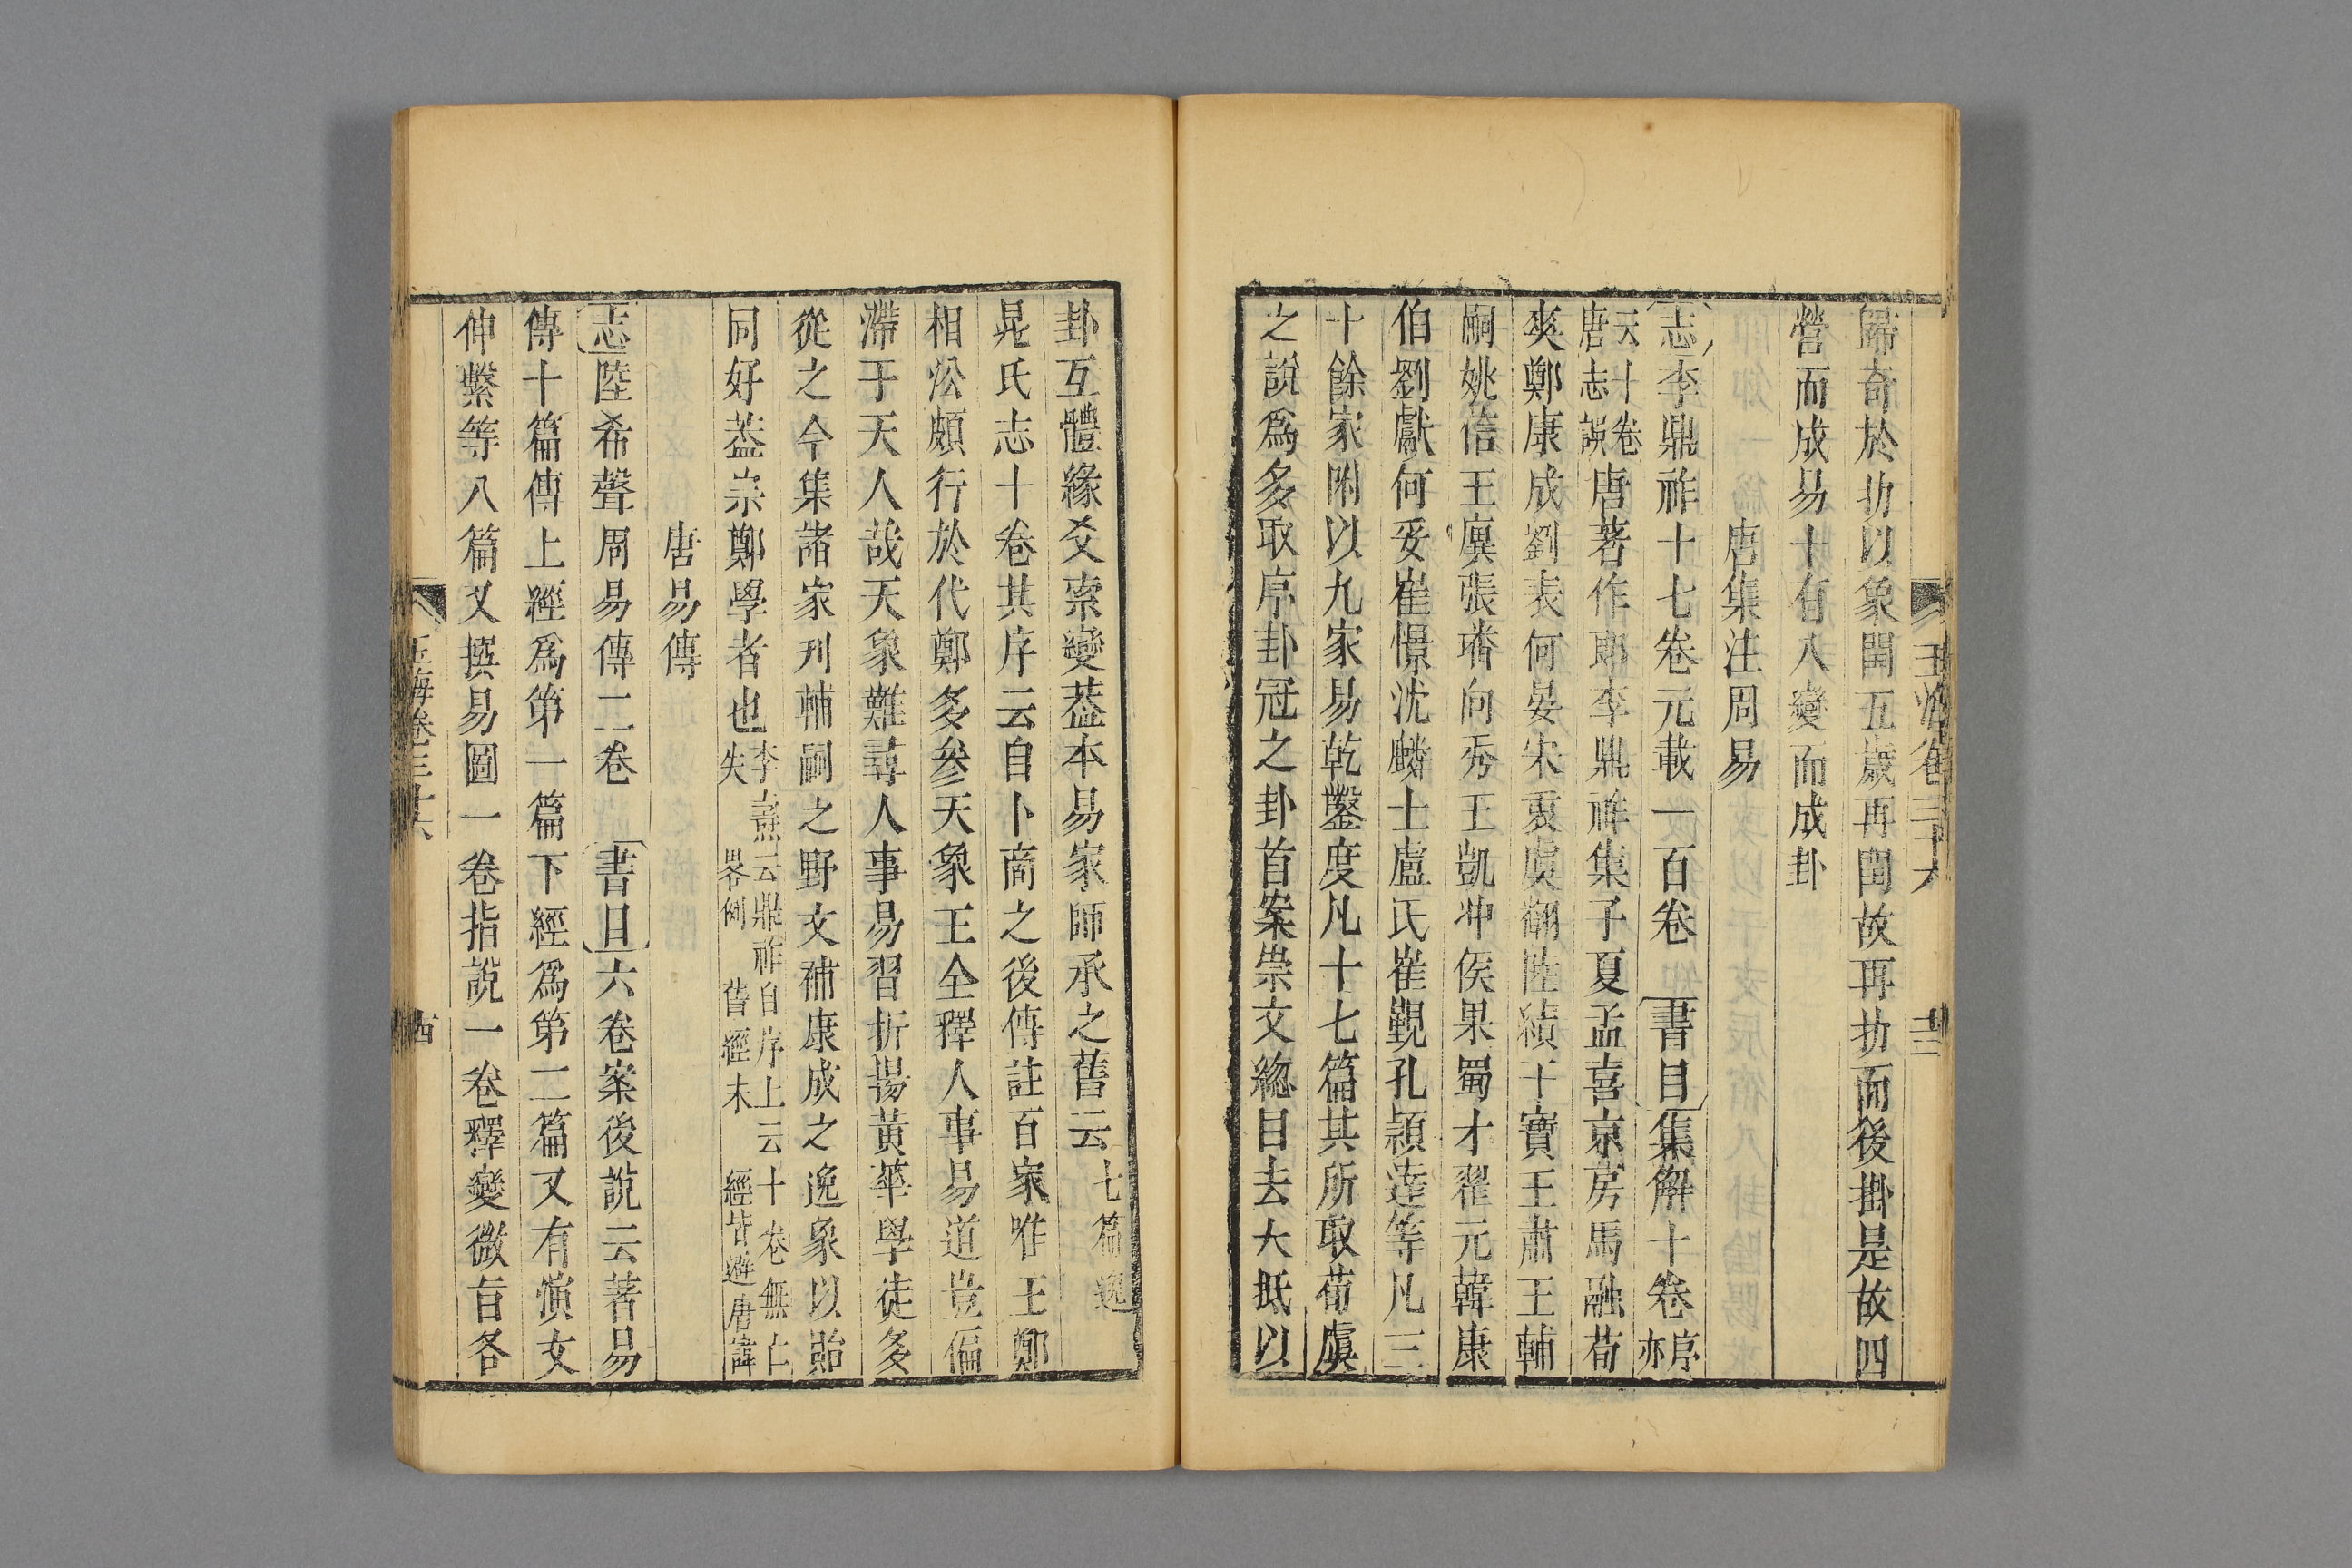 歸奇於扐以象閏五歲再閏故再扐而後掛是故四
營而成易十有八變而成卦
唐集注周易
志李鼎祚十七卷元載一百卷 書目集解十卷序亦
云十卷唐志誤唐著作郎李鼎祚集子夏孟喜京房馬融荀
爽鄭康成劉表何晏宋衷虞翻陸績干寶王肅王輔
嗣姚信王廙張璠向秀王凱冲侯果蜀才翟元韓康
伯劉巘何妥崔憬沈麟士盧氏崔覲孔穎達等凡三
十餘家附以九家易乾鑿度凡十七篇其所取荀虞
之說爲多取序卦冠之卦首案崇文緫目去大抵以
玉海卷三十六 十三
卦互體緣爻索變葢本易家師承之舊云七篇逸
晁氏志十卷其序云自卜商之後傳註百家唯王鄭
相㳂頗行於代鄭多參天象王全釋人事易道豈偏
滯于天人哉天象難尋人事易習折揚黃華學徒多
從之今集諸家刋輔嗣之野文補康成之逸象以貽
同好葢宗鄭學者也李燾云鼎祚自序止云十卷無亡失 畧例 舊經未 經皆避唐諱
唐易傳
志陸希聲周易傳二卷 書目六卷案後說云著易
傳十篇傳上經爲第一篇下經爲第二篇又有演文
伸繫等八篇又撰易圖一卷指說一卷釋變微旨各
玉海卷三十六 十四